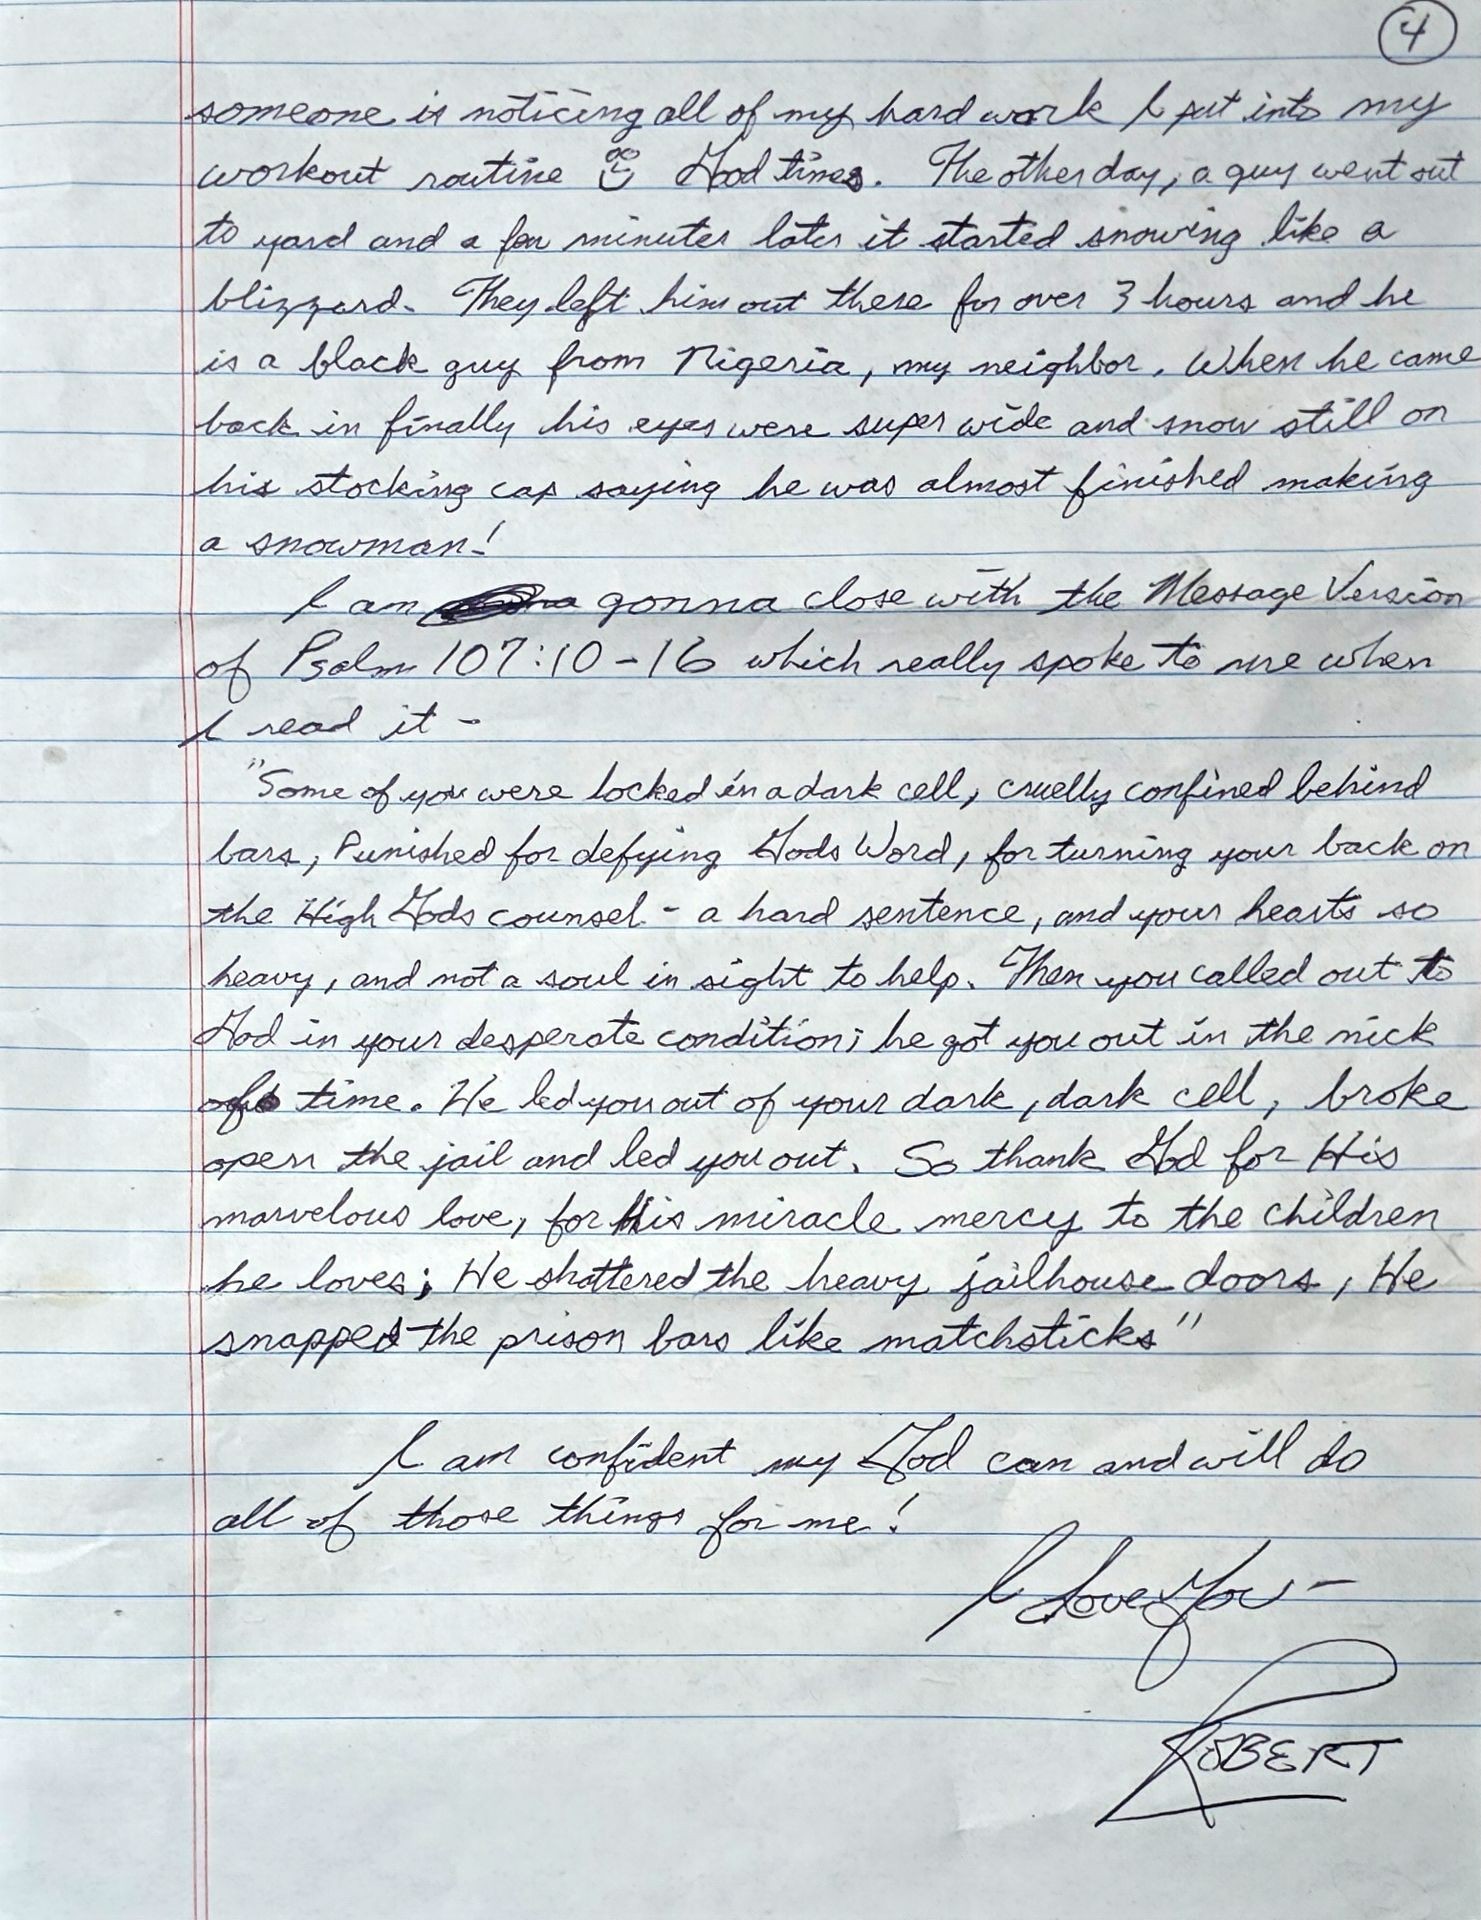 4
someone is noticing all of my hard work I put into my
workout routine Good times. The other day, a guy went out
to yard and a few minutes later it started snowing like a
blizzard. They left him out there for over 3 hours and he
is a black guy from Nigeria, my neighbor. When he came
back in finally his eyes were super wide and snow still on
his stocking cap saying he was almost finished making
a snowman!
I am gonna close with the Message Version
of Psalm 107:10-16 which really spoke to me when
I read it -
"Some of you were locked in a dark cell, cruelly confined behind
bars, Punished for defying Gods Word, for turning your back on
the High Gods counsel - a hard sentence, and your hearts so
heavy, and not a soul in sight to help. Then you called out to
God in your desperate condition; he got you out in the nick
of time. He led you out of your dark, dark cell, broke
open the jail and led you out. So thank God for His
marvelous love, for His miracle mercy to the children
he loves; He shattered the heavy jailhouse doors, He
snapped the prison bars like matchsticks"
I am confident my God can and will do
all of those things for me!
I Love You -
ROBERT